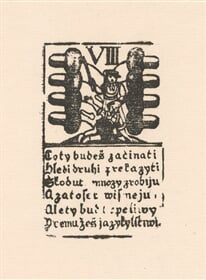 VIII
Coty budeš začinati
hledi druhi prekazyti
Skodut mnozy zrobiju
Azatosec wisneju
Alety bud trpeliwy
Premužeš jazyklstiwi.